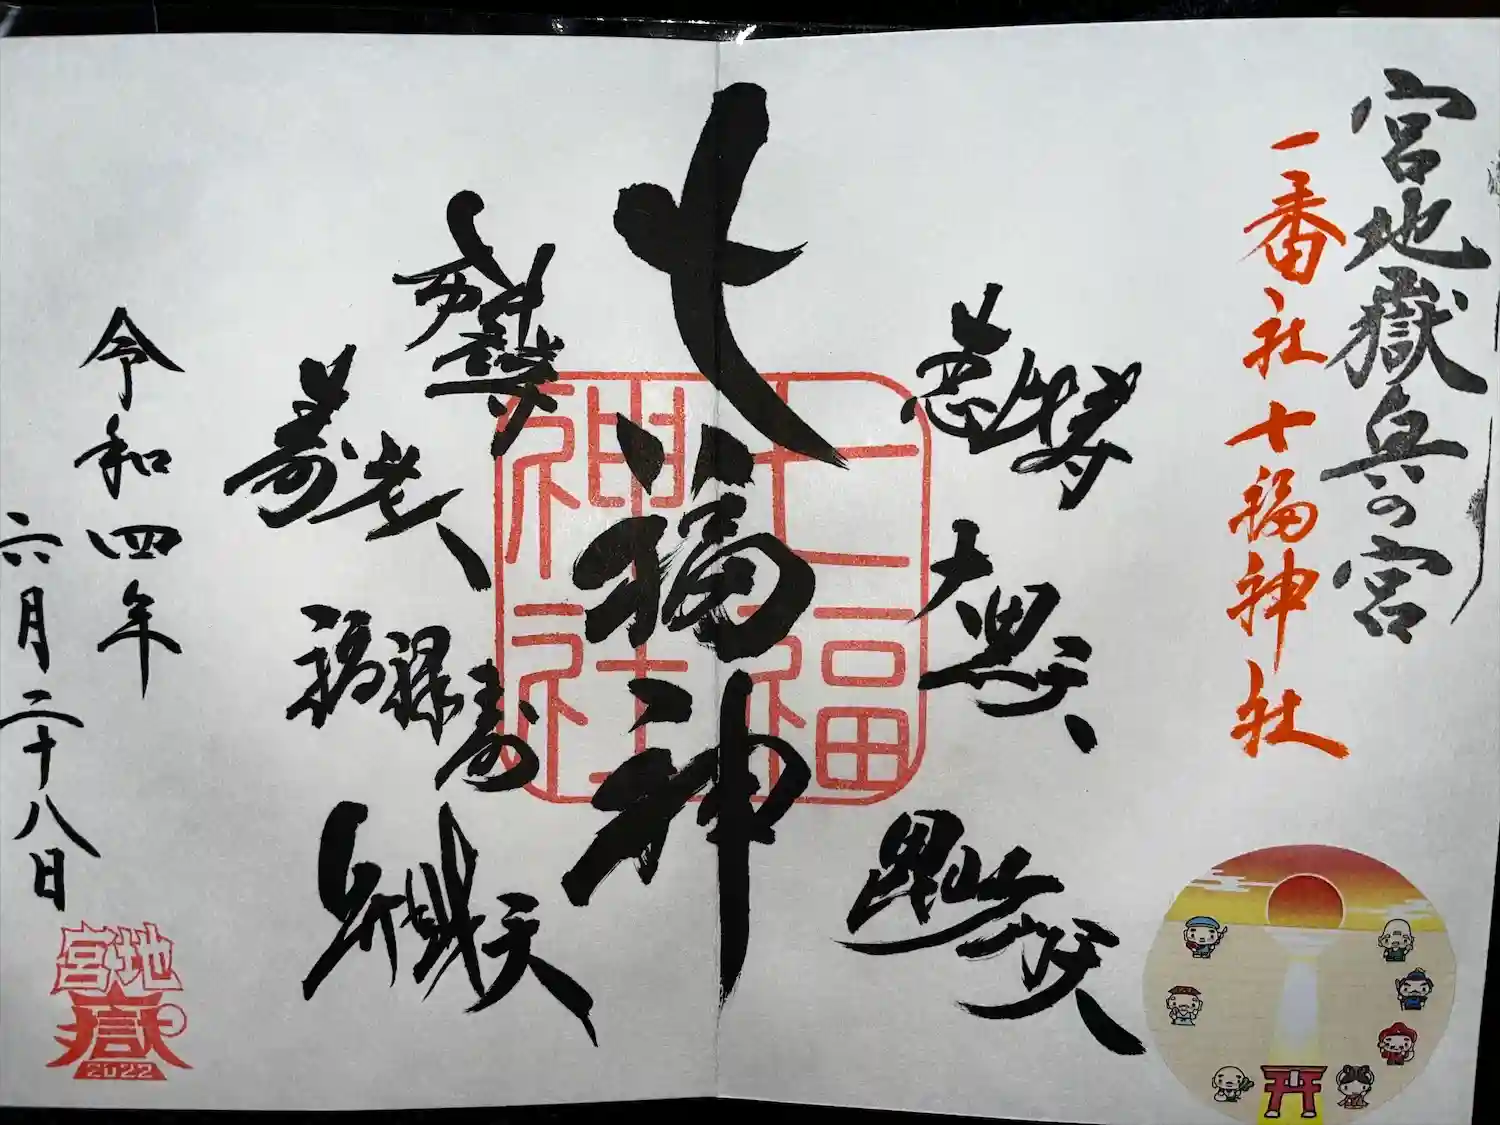 宮地嶽奥の宮
一番社七福神社
恵比寿
大黒天
毘沙門天
七福神
七福神社
寿老人
福禄寿
弁財天
令和四年
六月二十八日
宮地嶽
2022